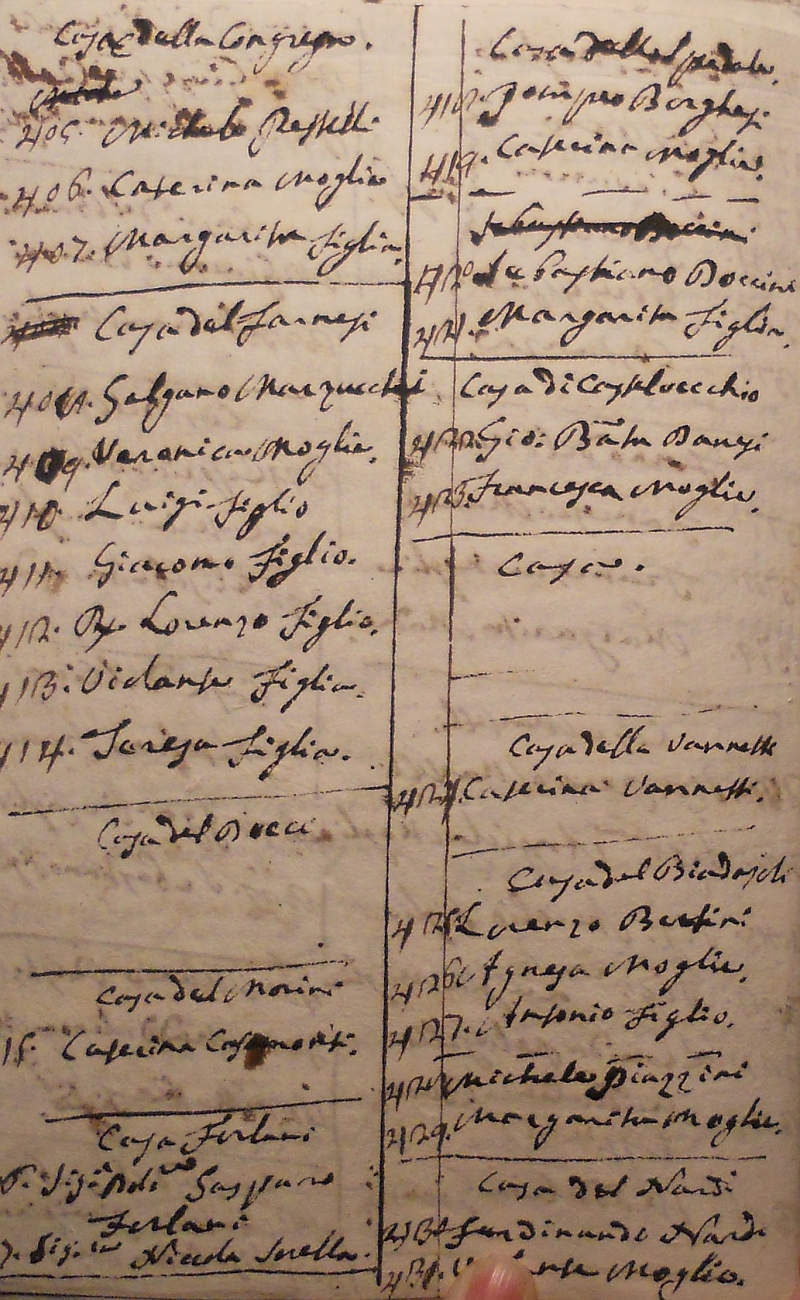 Casa della Congregne.
405. Michele Passelli
406. Caterina Moglie
407. Margarita figlia.
Casa del Farnesi
408. Galgano Marzucchi
409. Veronica Moglie.
410. Luigi figlio
411. Giacomo Figlio.
412. Lorenzo figlio.
413. Violante Figlia.
414. Teresa figlia.
Casa del Bocci
Casa del Morini
15. Caterina
Casa Forlani
Gaspare
Forlani
Nicola Sorella.
Casa dello Spedale.
418. Pompeo Borghesi
419. Caterina Moglie.
Sebastiano Boccini
420 Sebastiano Boccini
421. Margarita figlia.
Casa di Castelvecchio
422. Gio: Batta Banesi
423. Francesca Moglie.
Casa.
Casa della Vannetti
424. Caterina Vannetti.
Casa del Biadajoli
425. Lorenzo Bertini
426. Agnesa Moglie.
427. Antonio Figlio.
428 Michele Piazzini
429. Margarita Moglie.
Casa del Nardi
430 Ferdinando Nardi
431. Moglie.